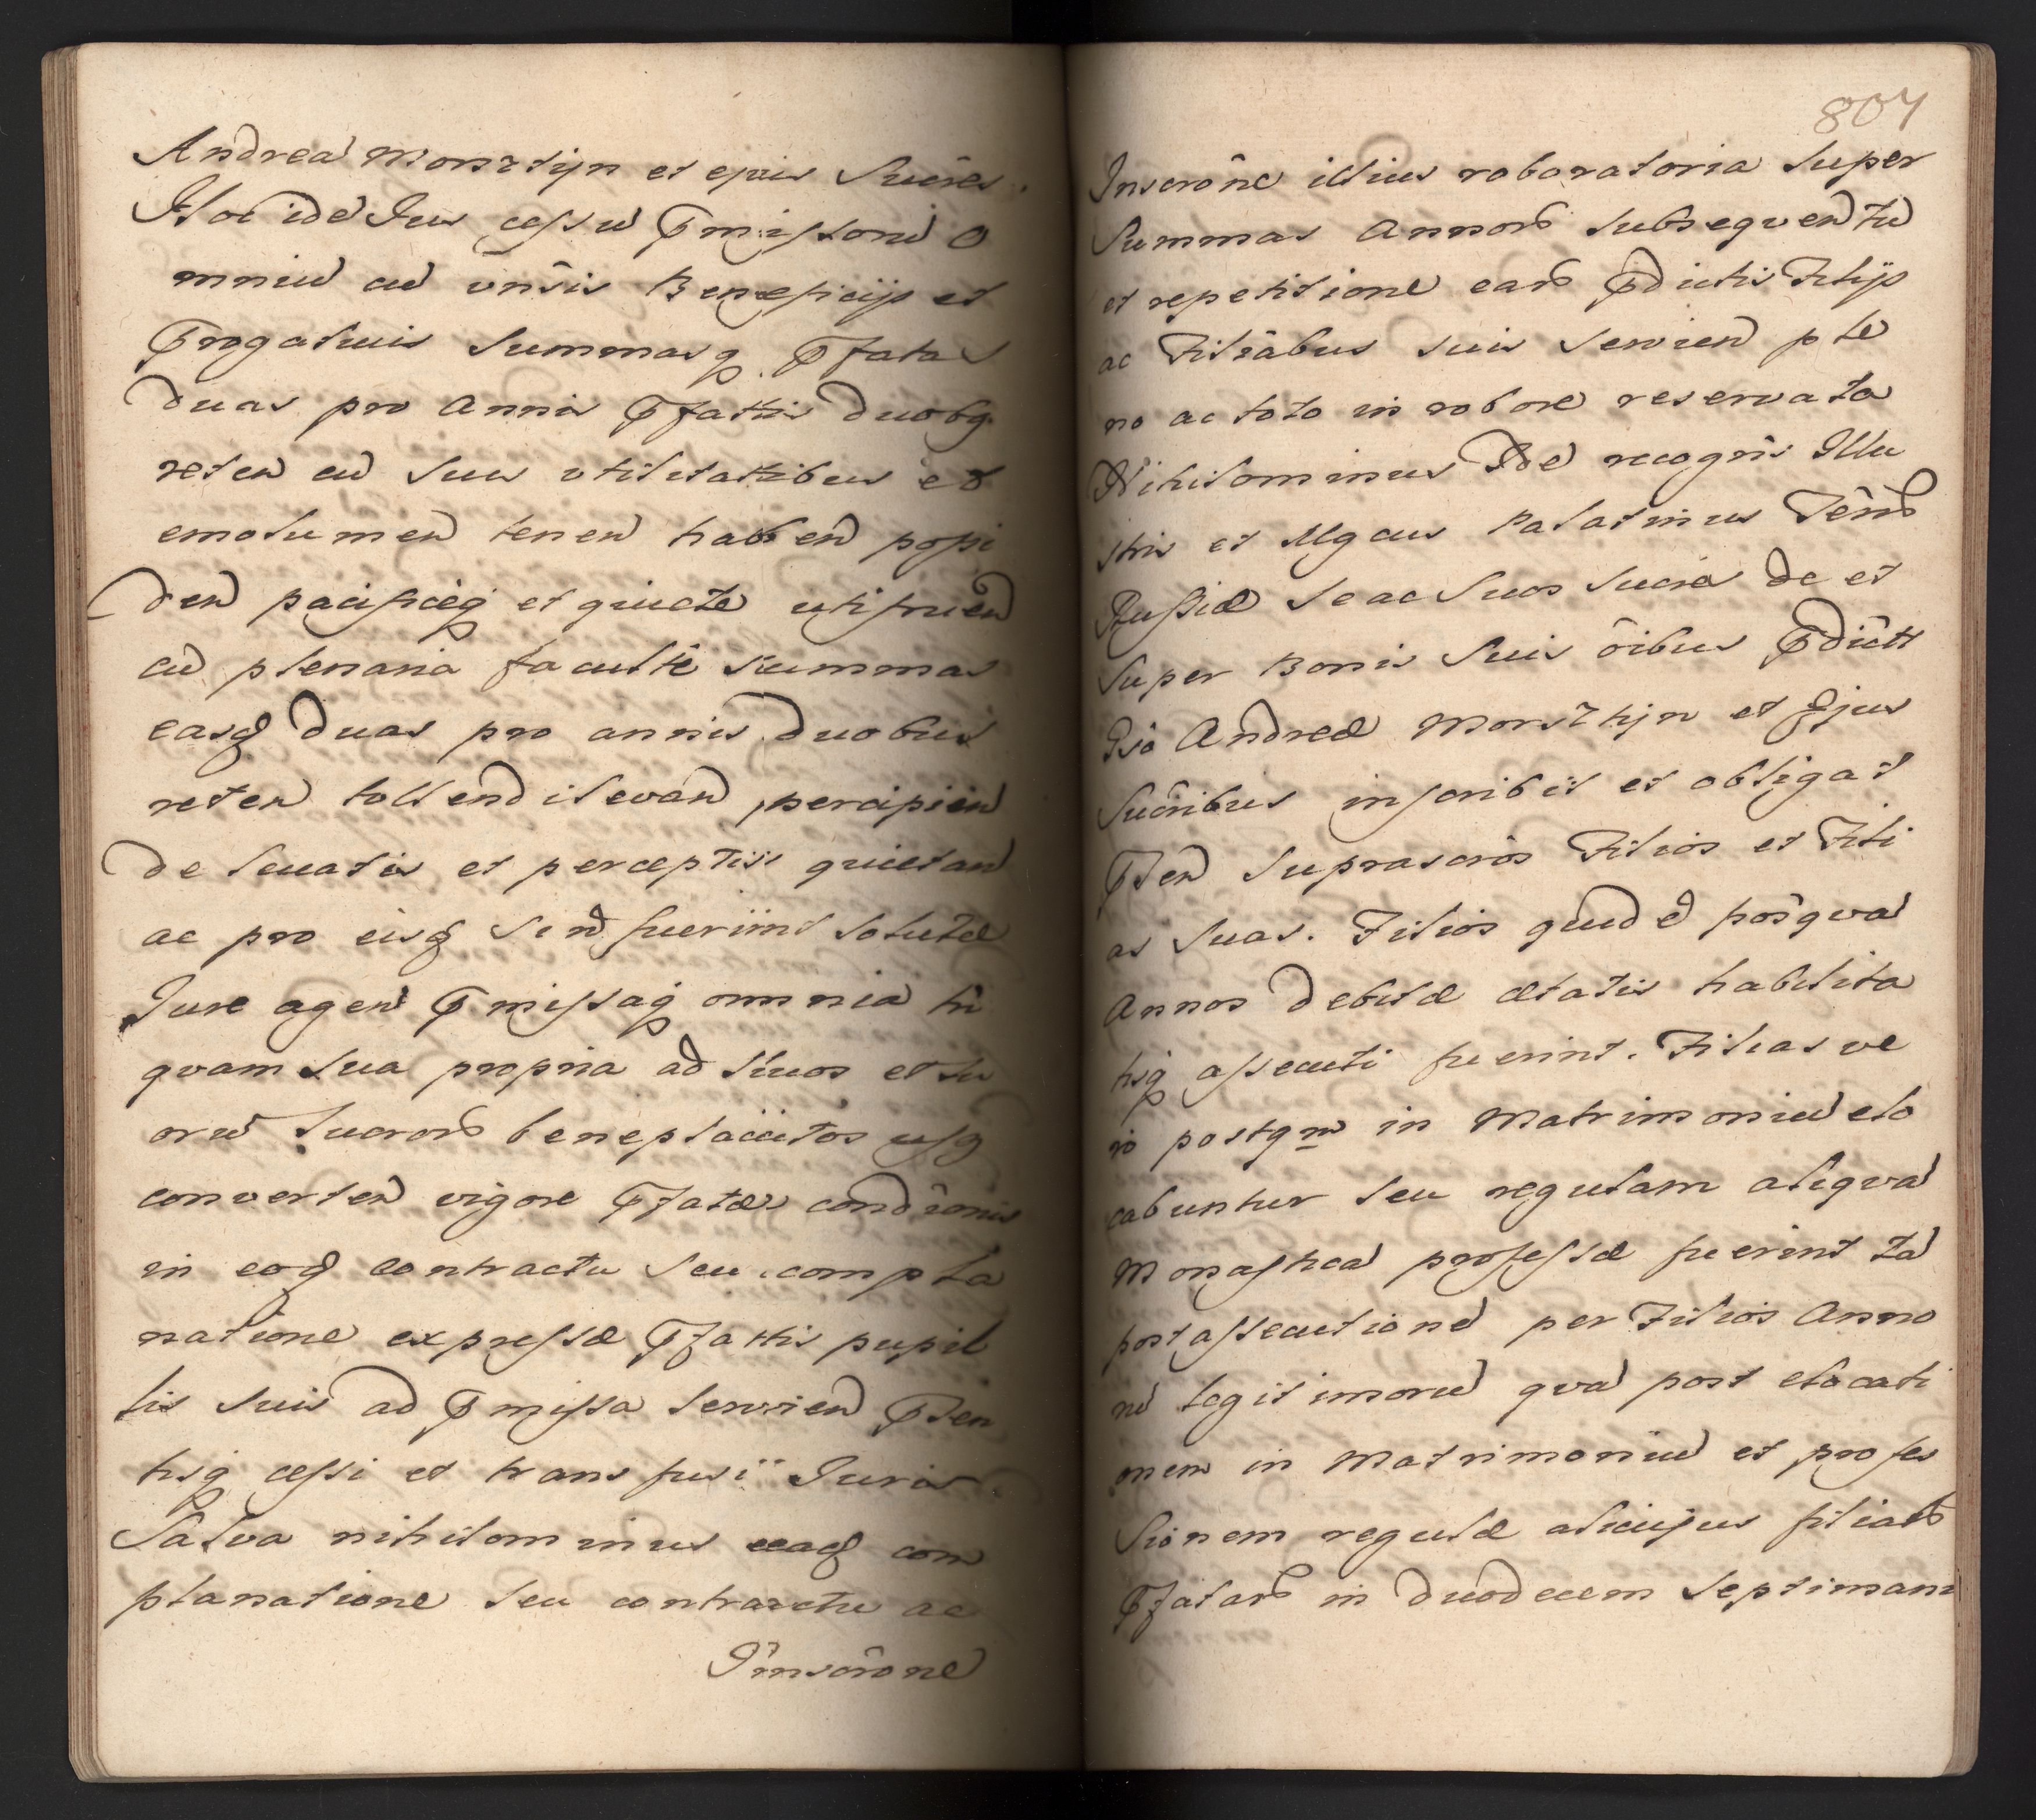 Andrea Morsztijn et ejus Sucres.
Hoc ide Jus cessu Pmissoru o
mniu cu vnsis Beneficijs et
Progatiuis summasq Pfatas
duas pro Annis Pfattis duobq
reten cu suu vtilitattibus et
emolumen tenen habben possi
den pacificeq et quiete utifruen
cu plenaria facultte summas
easq duas pro annis duobus
reten tollend ilevand percipien
de leuatis et perceptis quietand
ac pro eisq si nd fuerint solutæ
Jure agend Pmissaq omnia tn
qvam sua propria ad suos et su
oru sucror beneplacitos usq
converten vigore Pfatæ condionis
in eoq contractu seu compla
natione expressæ Pfattis pupil
lis suis ad Pmissa servien Psen
tisq cessi et transfusi Juris
Salva nihilominus eaq com
planatione seu contractu ac
Inscrone
807
Inscrone illius roboratoria super
Summas Annor subseqventiu
et repetitione ear Pdictis Filijs
ac Filiabus suis servien ple
no ac toto in robore reservata
Nihilominus Ide recogns Illu
stris et Mgcus Palatinus Terr
Russiæ se ac suos sucres de et
super Bonis suis oibus Pdictt
Gso Andreæ Morsztijn et Ejus
Sucribus inscribit et obligat
Psen suprascros Filios et Fili
as suas. Filios quide posqva
Annos debitæ ætatis habilita
tisq assecuti fuerint. Filias ve
ro postqm in Matrimoniu elo
cabuntur seu regulam aliqva
Monastica professæ fuerint ta
post assecutione per Filios Anno
ru legitimoru qva post elocati
onem in Matrimoniu et profes
sionem regulæ alicujus filiar
Pfatar in duodecem septimanis